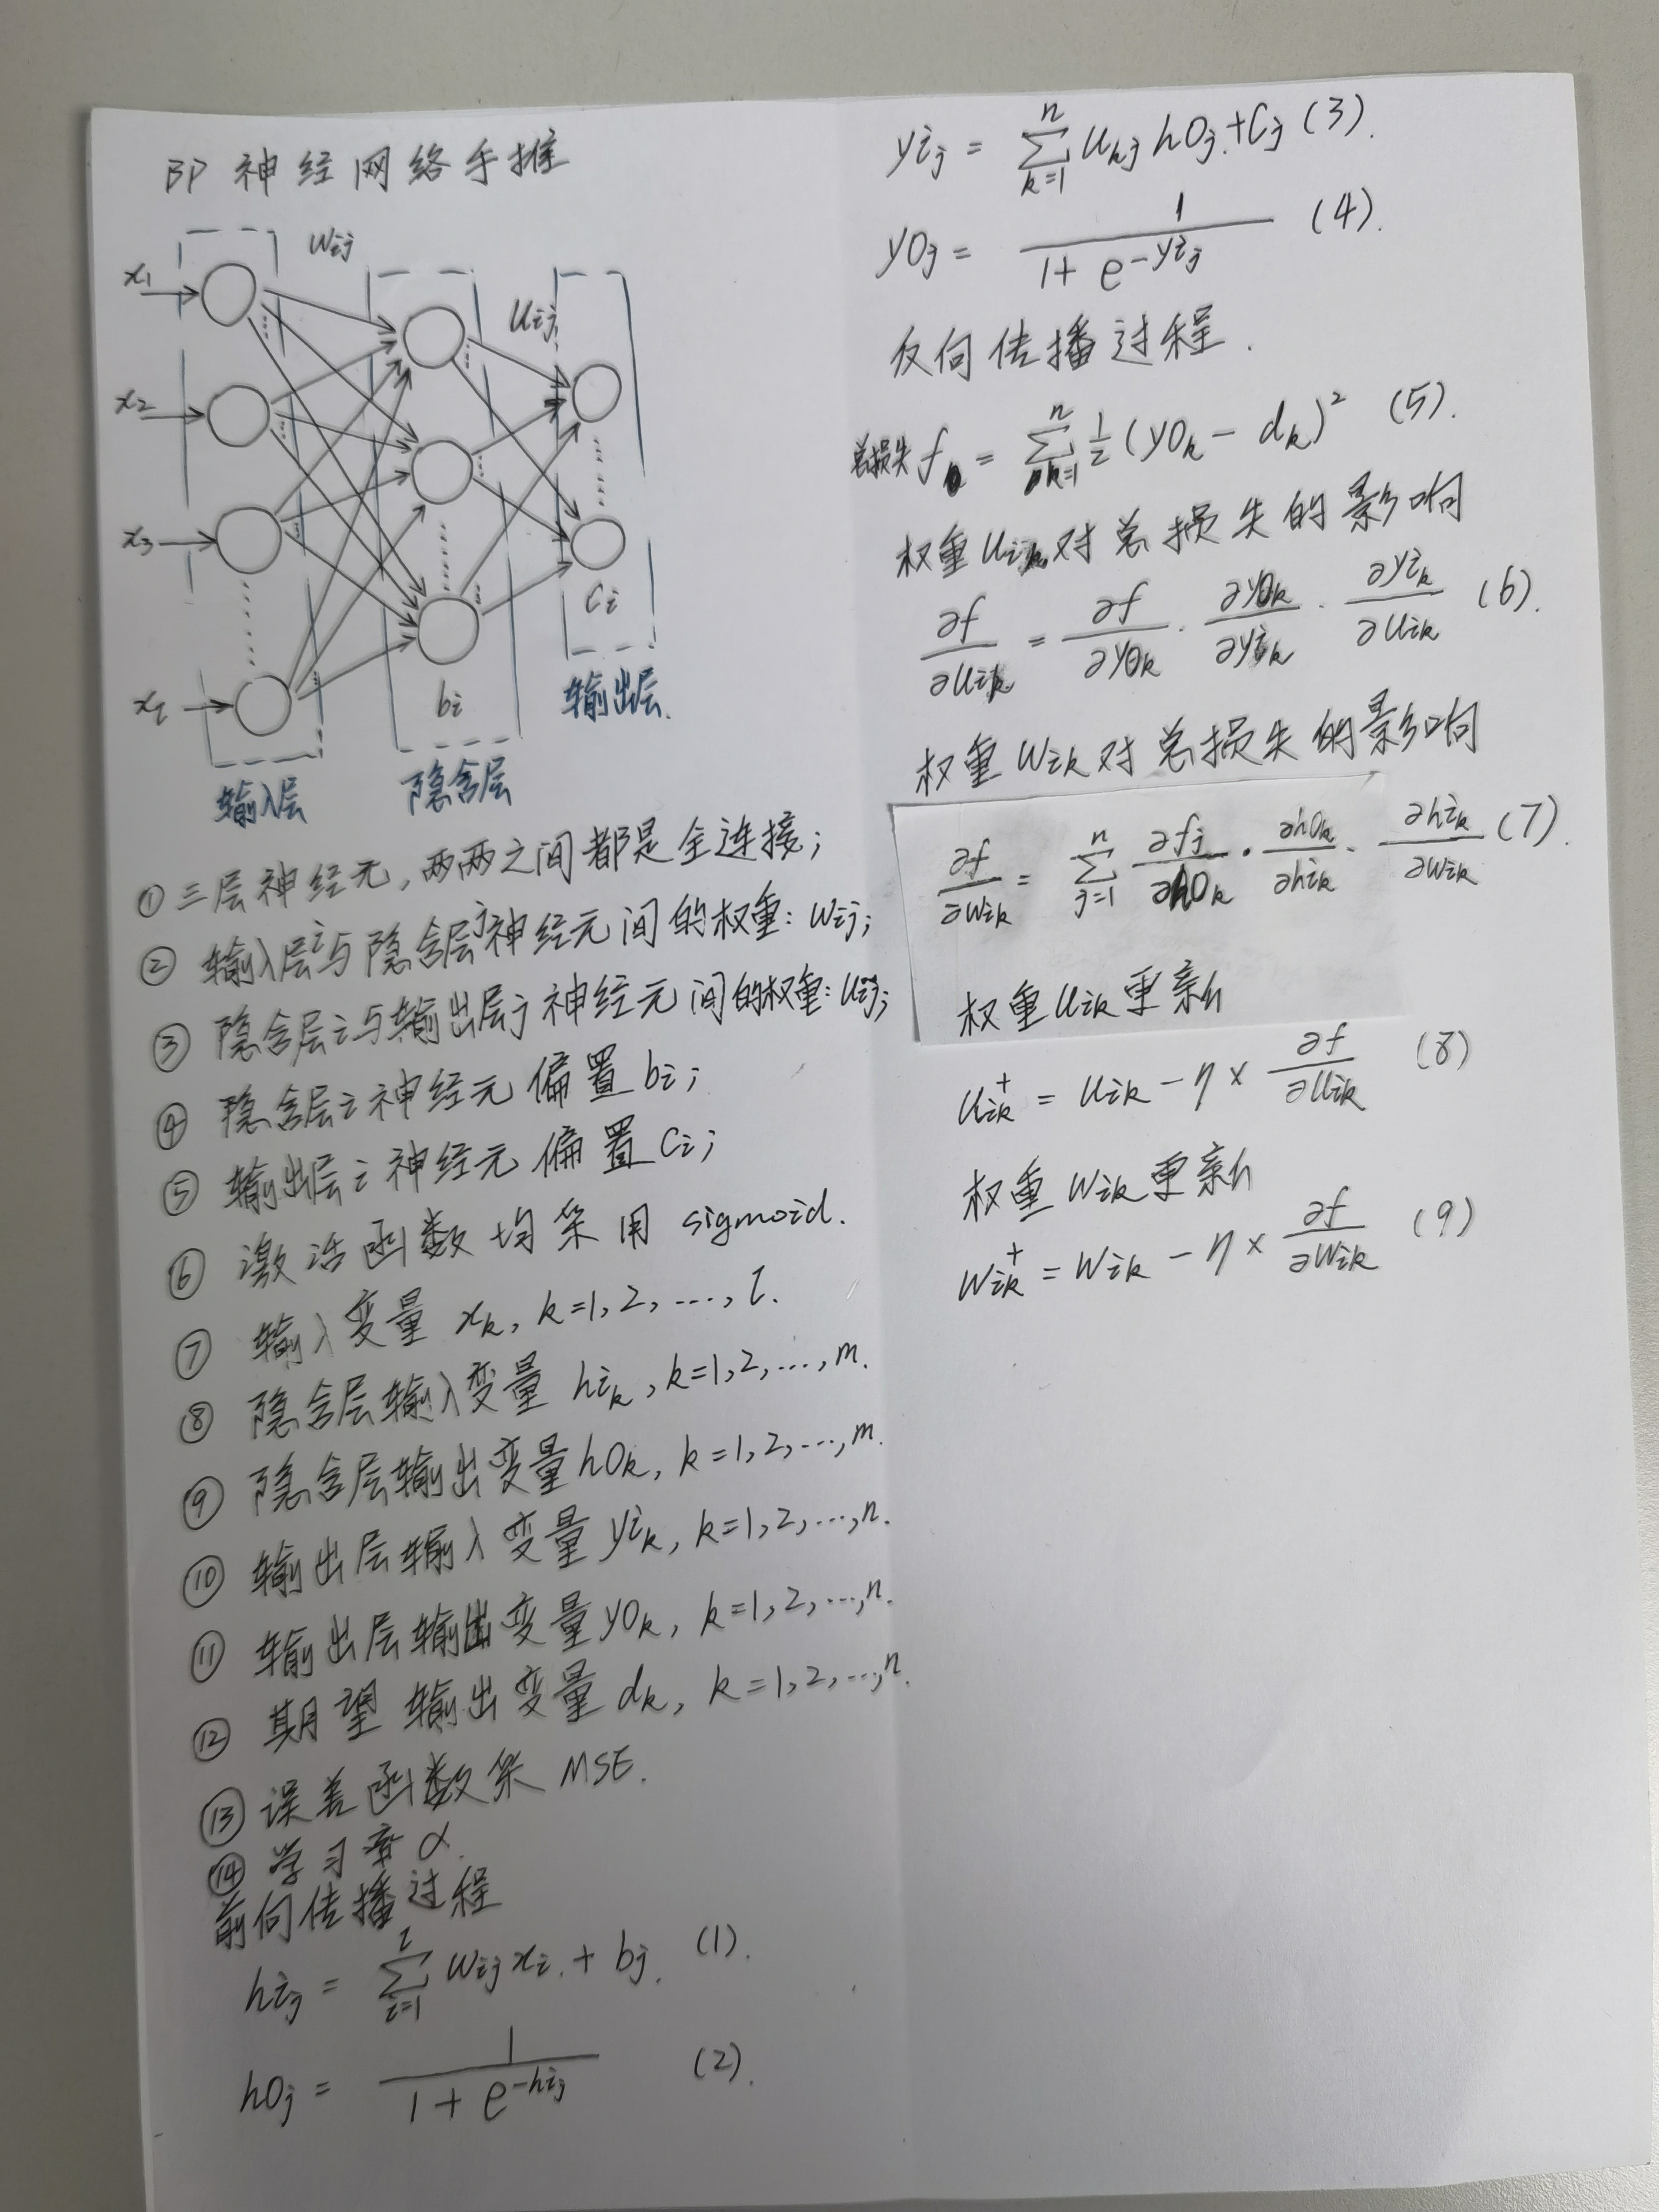 BP 神经网络手推
wij
x1
uij
x2
x3
ci
xl
bi
输出层
输入层
隐含层
① 三层神经元,两两之间都是全连接;
② 输入层i与隐含层j神经元间的权重: wij;
③ 隐含层i与输出层j神经元间的权重: uij;
④ 隐含层i神经元偏置 bi;
⑤ 输出层i神经元偏置 ci;
⑥ 激活函数均采用 sigmoid.
⑦ 输入变量 xk, k=1,2,…,l.
⑧ 隐含层输入变量 hik, k=1,2,…,m.
⑨ 隐含层输出变量 hOk, k=1,2,…,m.
⑩ 输出层输入变量 yik, k=1,2,…,n.
⑪ 输出层输出变量 yOk, k=1,2,…,n.
⑫ 期望输出变量 dk, k=1,2,…,n.
⑬ 误差函数采 MSE.
⑭ 学习率 α.
前向传播过程
hij = ∑_{i=1}^{l} wij xi + bj. (1).
hOj = 1 / (1 + e^{-hij}) (2).
yij = ∑_{k=1}^{n} ukj hOj + Cj (3).
yOj = 1 / (1 + e^{-yij}) (4).
反向传播过程.
总损失 f = ∑_{k=1}^{n} 1/2 (yOk - dk)² (5).
权重 uik 对总损失的影响
∂f/∂uik = ∂f/∂yOk · ∂yOk/∂yik · ∂yik/∂uik (6).
权重 wik 对总损失的影响
∂f/∂wik = ∑_{j=1}^{n} ∂fj/∂hOk · ∂hOk/∂hik · ∂hik/∂wik (7).
权重 uik 更新
uik⁺ = uik - η × ∂f/∂uik (8)
权重 wik 更新
wik⁺ = wik - η × ∂f/∂wik (9)